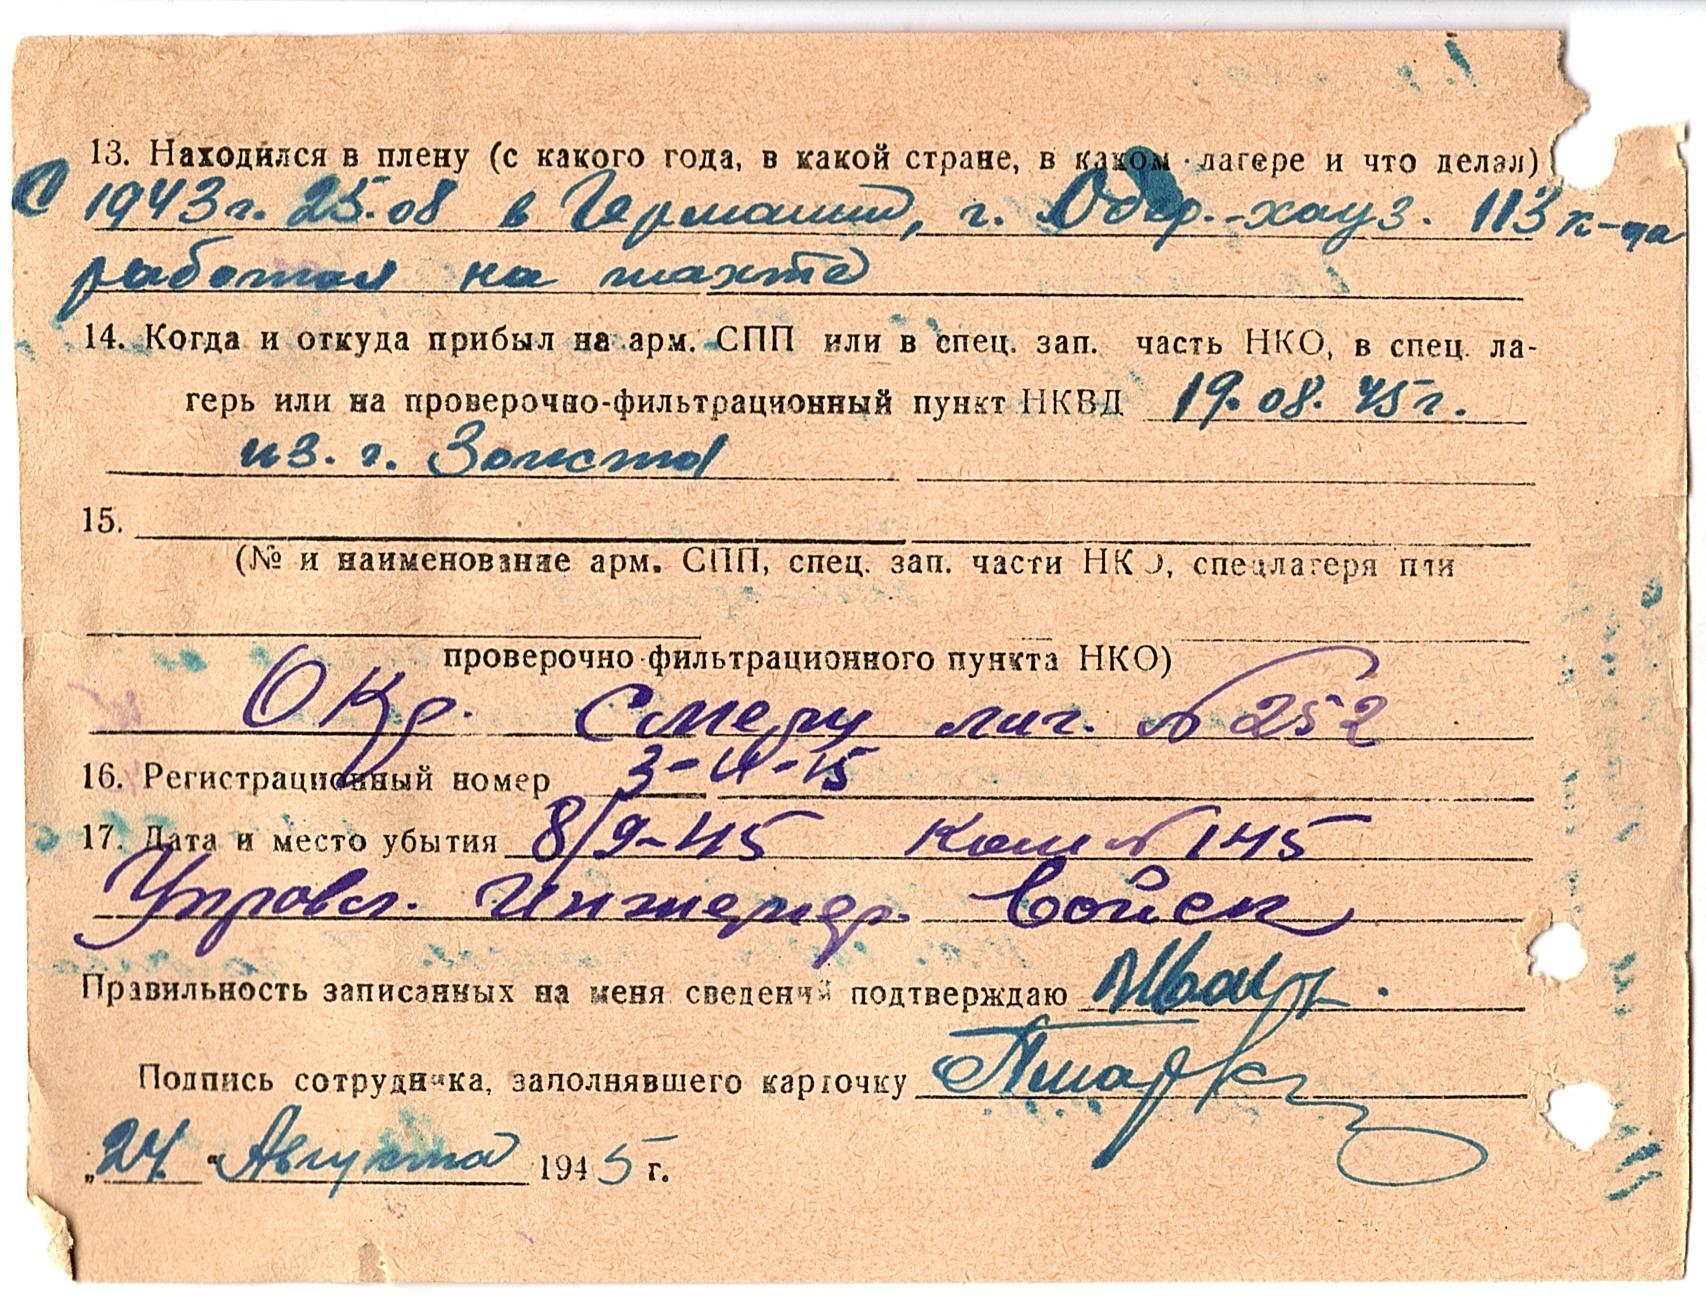 13. Находился в плену (с какого года, в какой стране, в каком лагере и что делал)
С 1943 г. 25.08 в Германии, г. Обер-хауз. 113 к-да
работал на шахте
14. Когда и откуда прибыл на арм. СПП или в спец. зап. часть НКО, в спец. ла-
герь или на проверочно-фильтрационный пункт НКВД 19.08.45 г.
из. г.
15.
(№ и наименование арм. СПП, спец. зап. части НКО, спецлагеря или
проверочно-фильтрационного пункта НКО)
Окр. лаг. № 252
16. Регистрационный номер
17. Дата и место убытия 8/9-45 № 145
Управл. Инженер. Войск
Правильность записанных на меня сведений подтверждаю
Подпись сотрудника, заполнявшего карточку
„24“ Августа 1945 г.